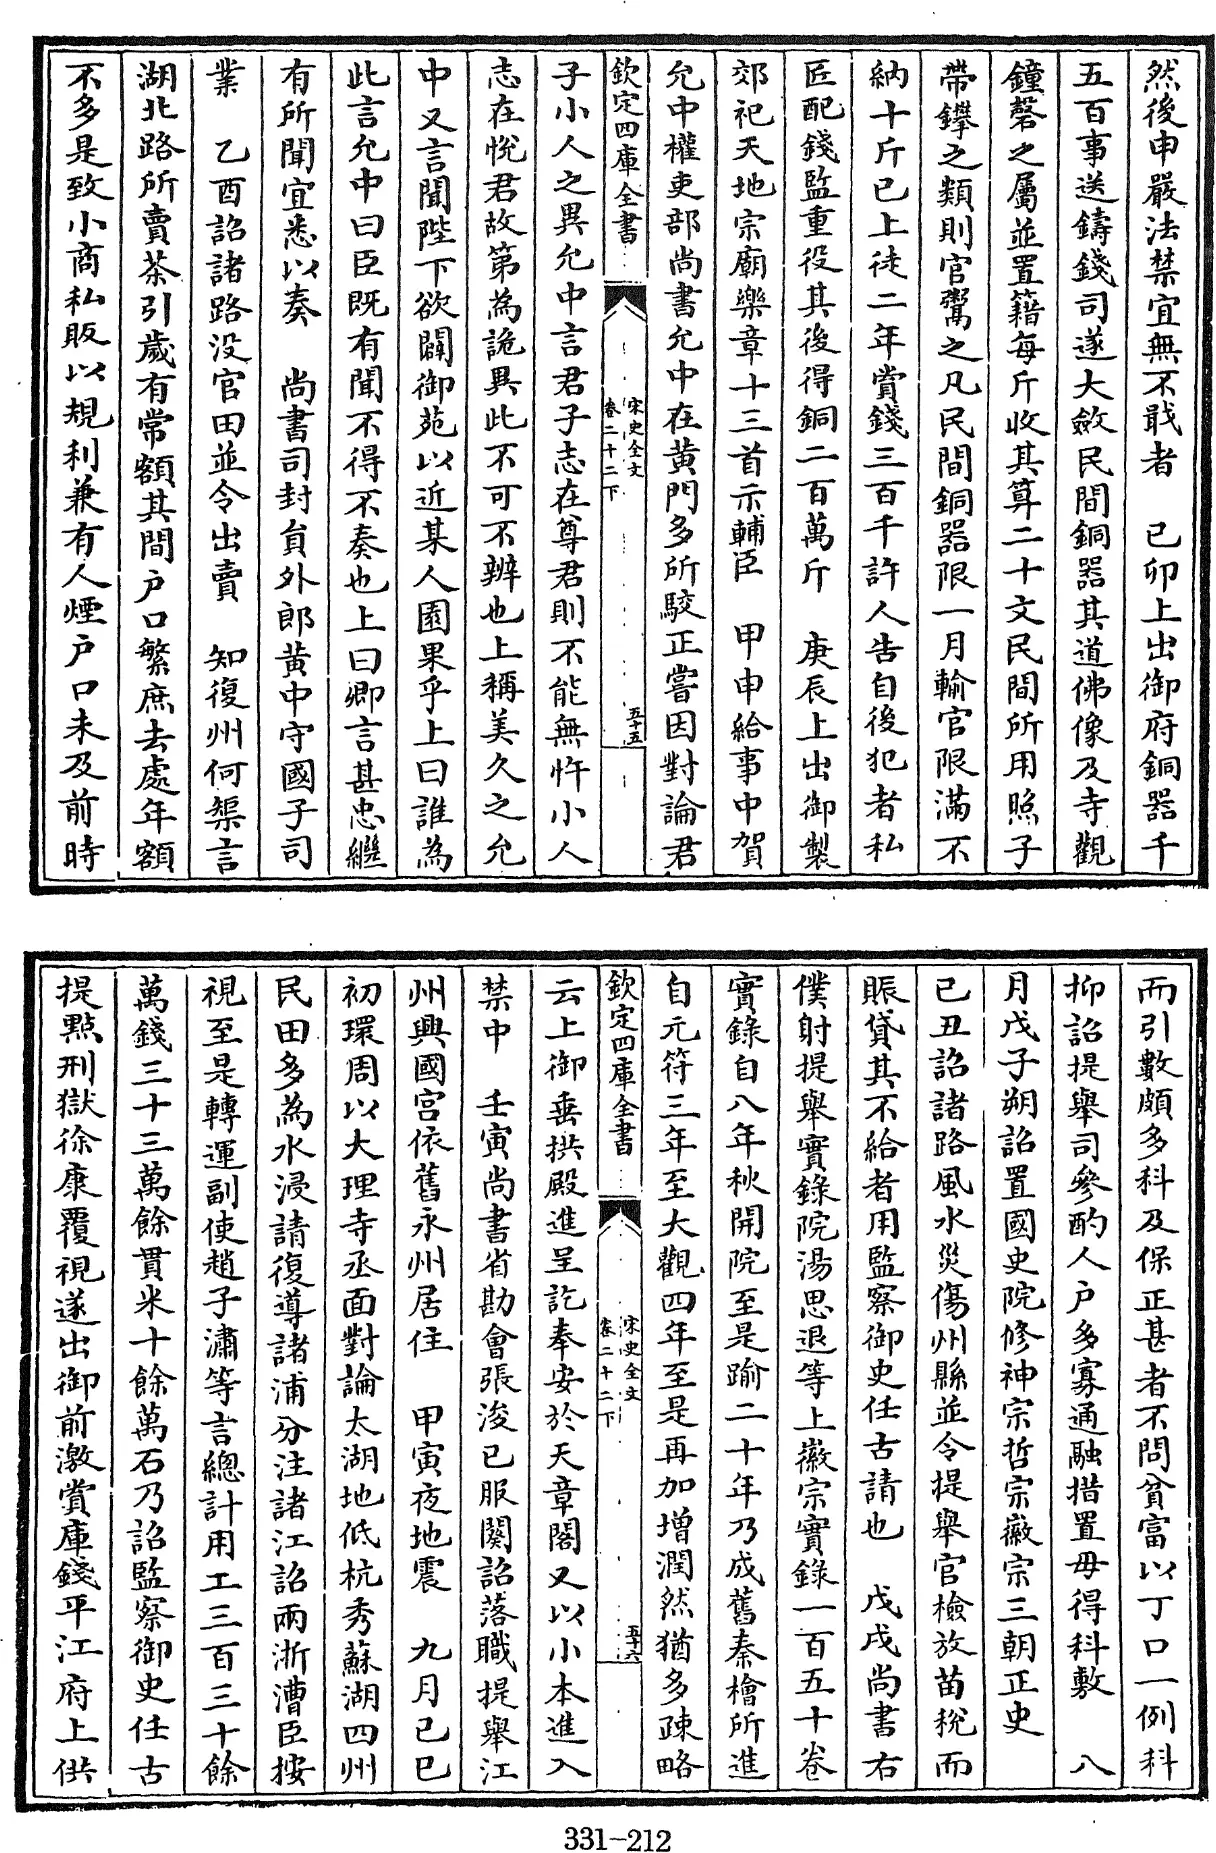 然後申嚴法禁宜無不戢者　己卯上出御府銅器千
五百事送鑄錢司遂大斂民間銅器其道佛像及寺觀
鐘磬之屬並置籍每斤收其算二十文民間所用照子
帶鐢之類則官鬻之凡民間銅器限一月輸官限滿不
納十斤已上徒二年賞錢三百千許人告自後犯者私
匠配錢監重役其後得銅二百萬斤　庚辰上出御製
郊祀天地宗廟樂章十三首示輔臣　甲申給事中賀
允中權吏部尚書允中在黃門多所駁正嘗因對論君
欽定四庫全書
宋史全文
卷二十二下
五十五
子小人之異允中言君子志在尊君則不能無忤小人
志在悅君故第為詭異此不可不辨也上稱美久之允
中又言聞陛下欲闢御苑以近某人園果乎上曰誰為
此言允中曰臣既有聞不得不奏也上曰卿言甚忠繼
有所聞宜悉以奏　尚書司封員外郎黃中守國子司
業　乙酉詔諸路沒官田並令出賣　知復州何榘言
湖北路所賣茶引歲有常額其間户口繁庶去處年額
不多是致小商私販以規利兼有人煙户口未及前時
而引數頗多科及保正甚者不問貧富以丁口一例科
抑詔提舉司參酌人户多寡通融措置毋得科敷　八
月戊子朔詔置國史院修神宗哲宗徽宗三朝正史
己丑詔諸路風水災傷州縣並令提舉官檢放苗稅而
賑貸其不給者用監察御史任古請也　戊戌尚書右
僕射提舉實錄院湯思退等上徽宗實錄一百五十卷
實錄自八年秋開院至是踰二十年乃成舊秦檜所進
自元符三年至大觀四年至是再加增潤然猶多疎略
欽定四庫全書
宋史全文
卷二十二下
五十六
云上御垂拱殿進呈訖奉安於天章閣又以小本進入
禁中　壬寅尚書省勘會張浚已服闋詔落職提舉江
州興國宮依舊永州居住　甲寅夜地震　九月己巳
初環周以大理寺丞面對論太湖地低杭秀蘇湖四州
民田多為水浸請復導諸浦分注諸江詔兩浙漕臣按
視至是轉運副使趙子潚等言總計用工三百三十餘
萬錢三十三萬餘貫米十餘萬石乃詔監察御史任古
提點刑獄徐康覆視遂出御前激賞庫錢平江府上供
331-212